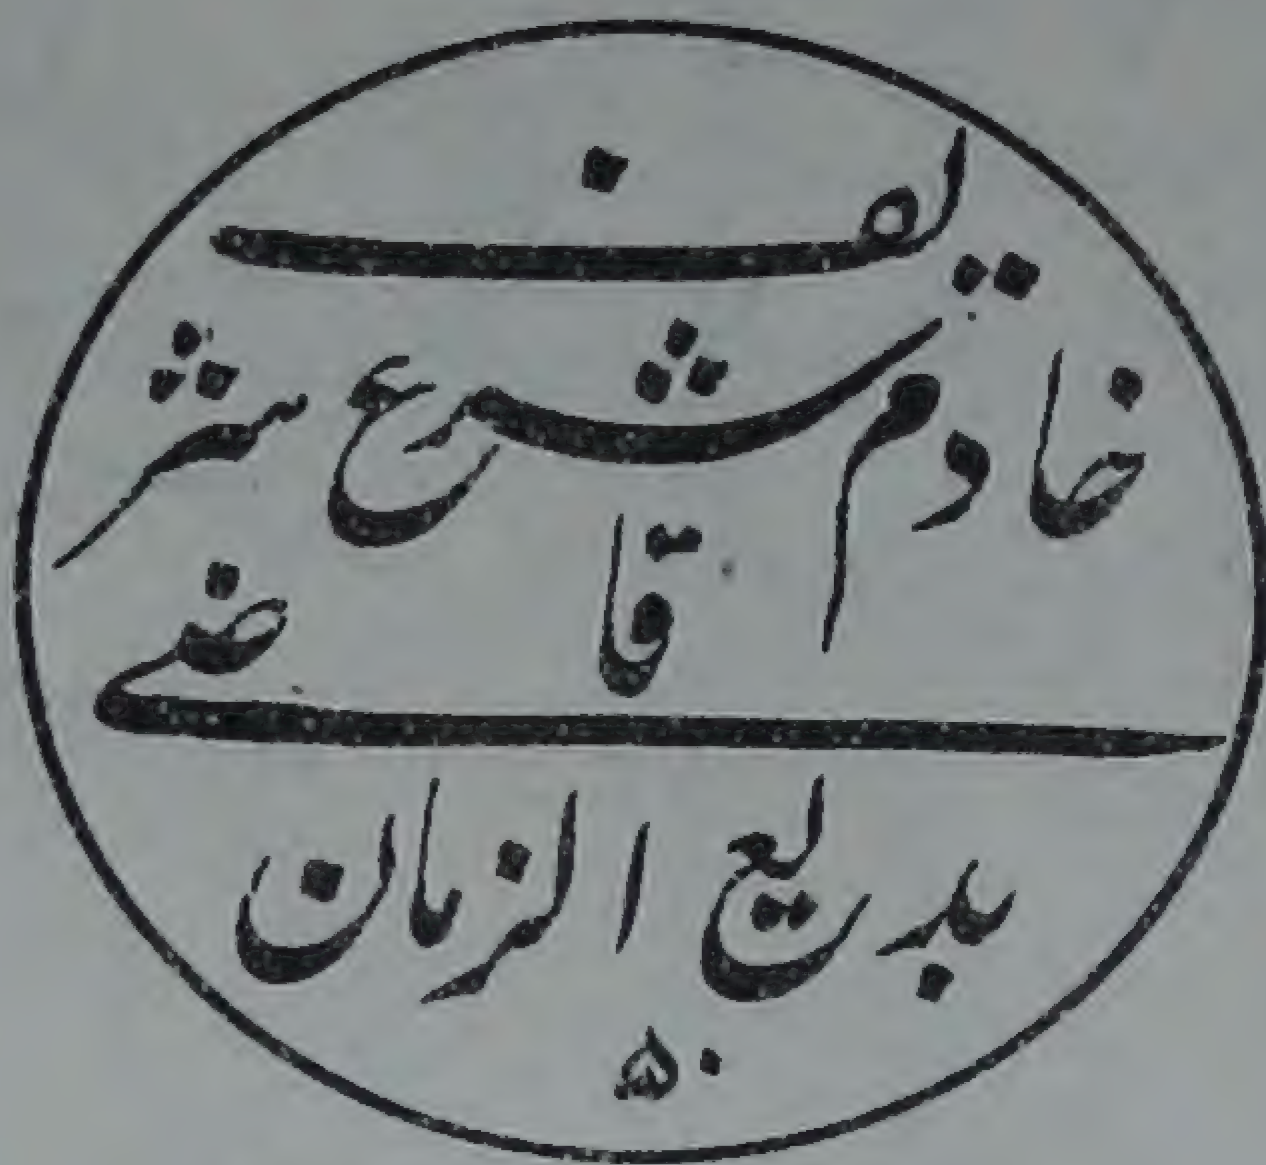 خادم شرع شریف
قاضے
بدیع الزمان
۵۰